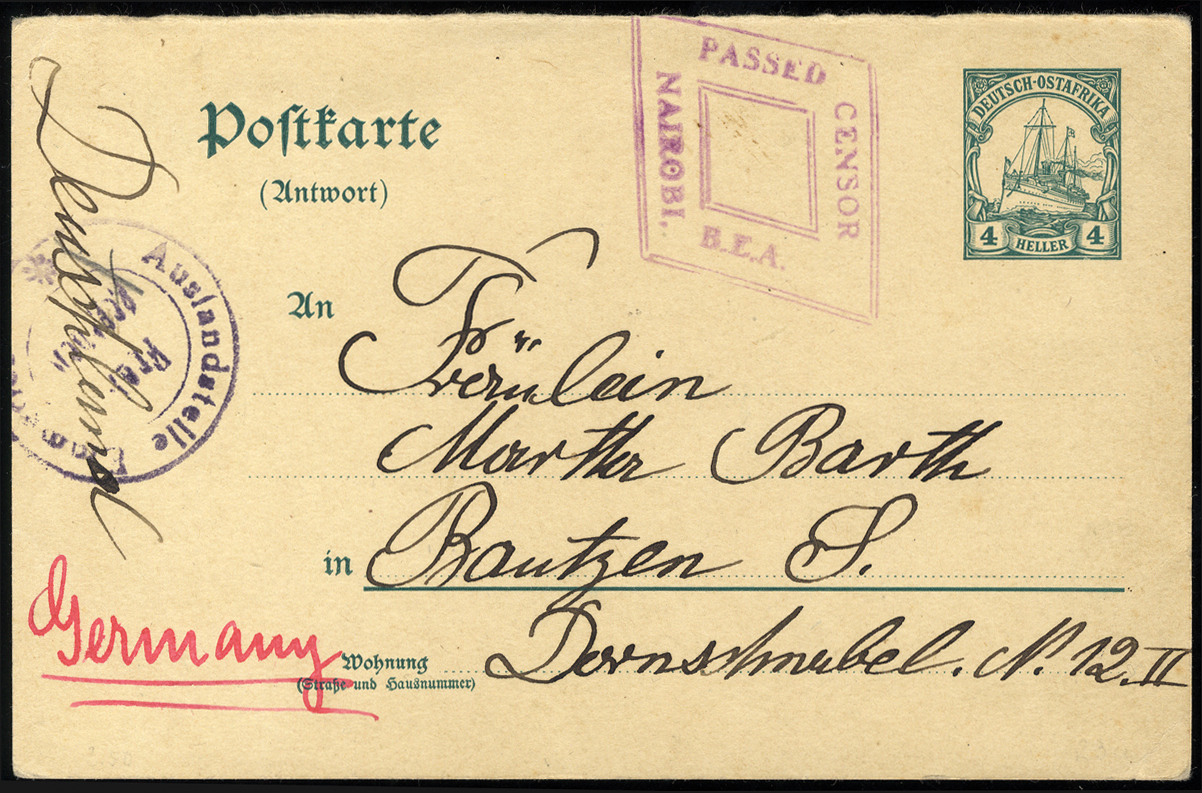 Postkarte
(Antwort)
PASSED
CENSOR
NAIROBI,
B.E.A.
DEUTSCH-OSTAFRIKA
4 HELLER 4
An
Fräulein
Martha Barth
in Bautzen S.
Wohnung
(Straße und Hausnummer)
Dornschnabel. N. 12. II
Germany
Auslandstelle